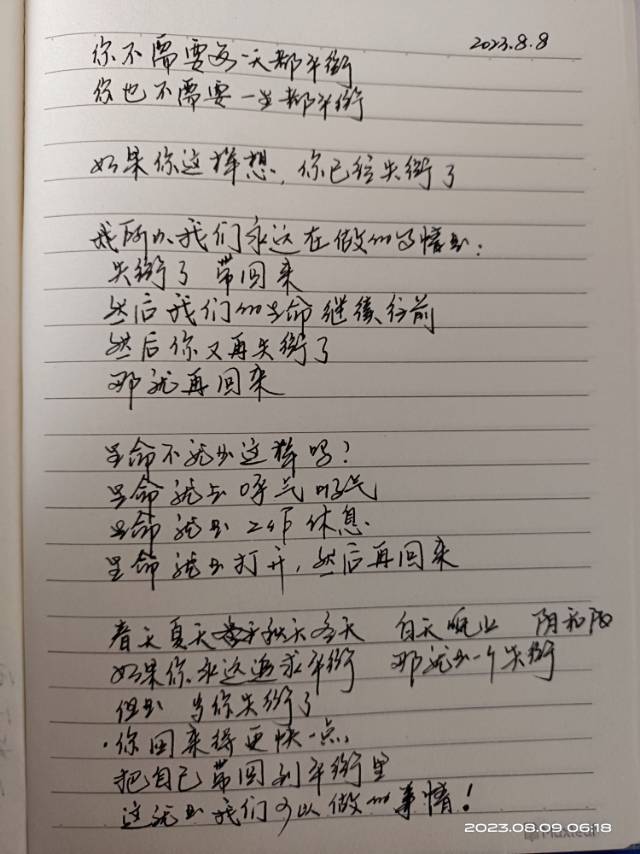 2023.8.8
你不需要每一天都平衡
你也不需要一生都平衡
如果你这样想，你已经失衡了
我所以我们永远在做的事情是：
失衡了 带回来
然后我们的生命继续往前
然后你又再失衡了
那就再回来
生命不就是这样吗？
生命就是呼气吸气
生命就是工作休息
生命就是打开，然后再回来
春天夏天秋天冬天 白天晚上 阴和阳
如果你永远追求平衡 那就是一个失衡
但是 当你失衡了
·你回来得更快一点，
把自己带回到平衡里
这就是我们可以做的事情！
2023.08.09 06:18